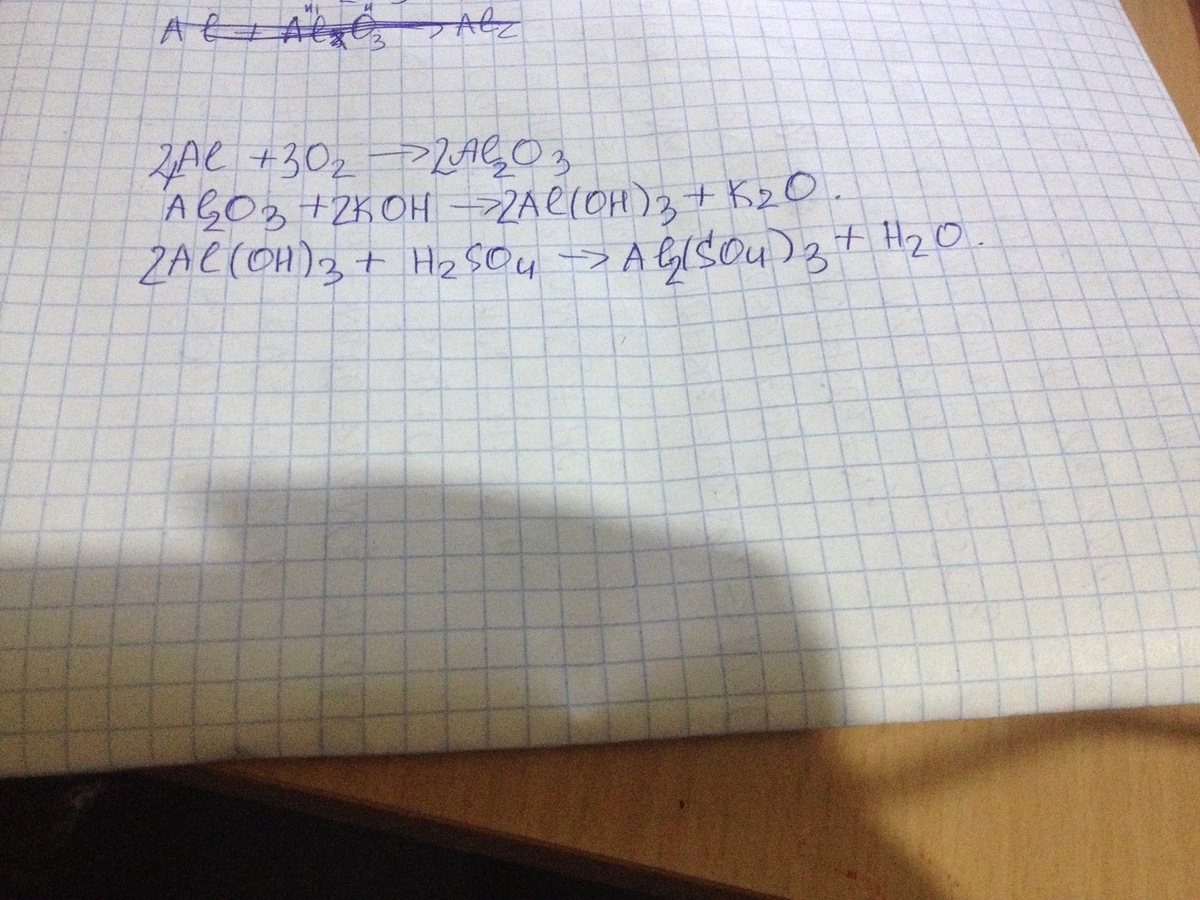 Al + Al₂O₃ → Al₂
4Al + 3O₂ → 2Al₂O₃
Al₂O₃ + 2KOH → 2Al(OH)₃ + K₂O.
2Al(OH)₃ + H₂SO₄ → Al₂(SO₄)₃ + H₂O.